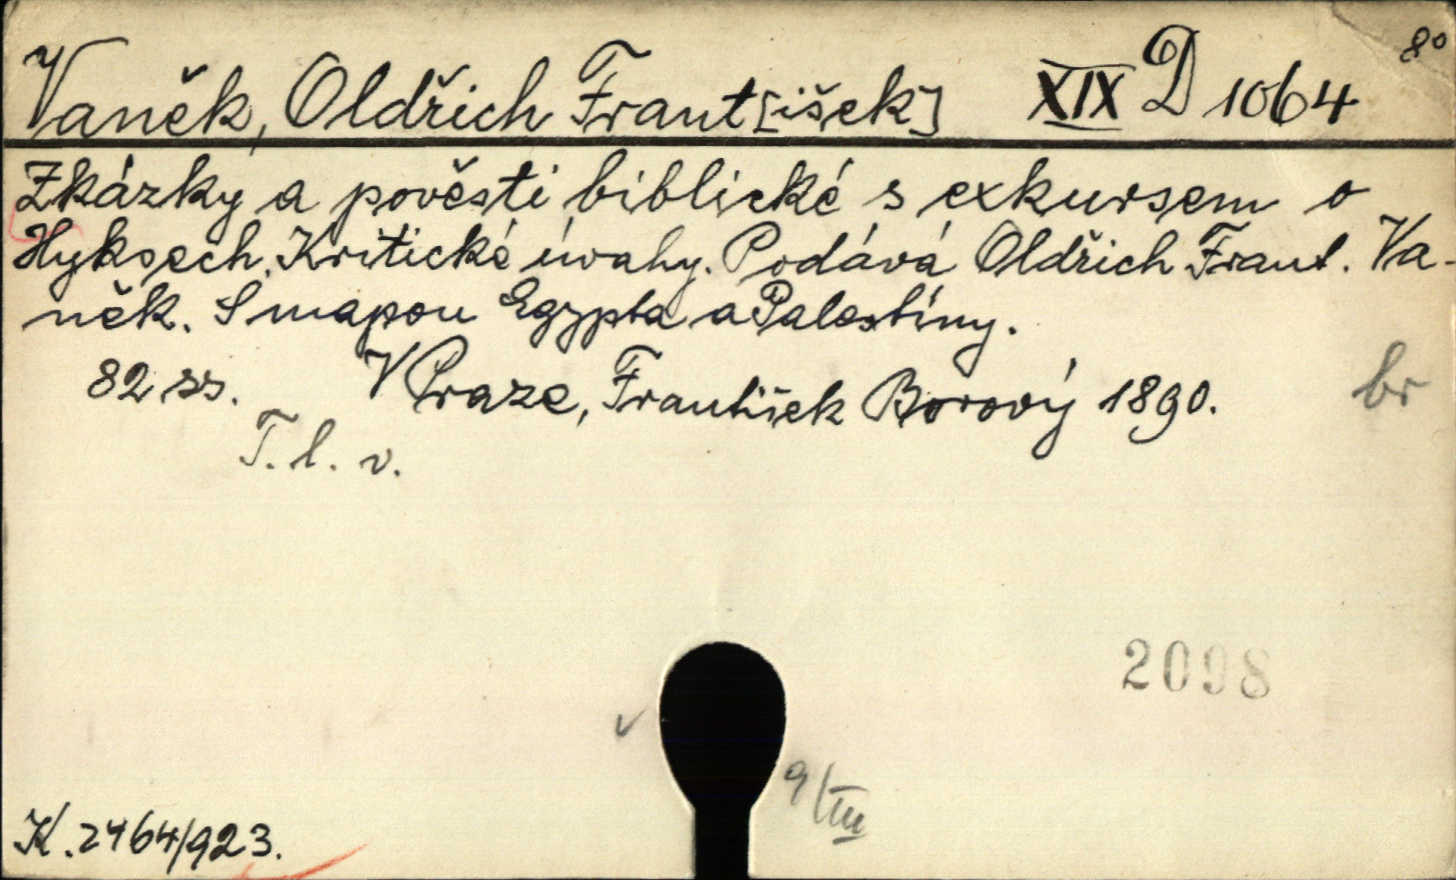 8°
Vaněk, Oldřich Frant[išek] XIX D 1064
Zkázky a pověsti biblické s exkursem o
Hyksech. Kritické úvahy. Podává Oldřich Frant. Va-
něk. S mapou Egypta a Palestiny.
82 ss. V Praze, František Borový 1890.
br
T. l. v.
2098
9/III
K. 2464/923.